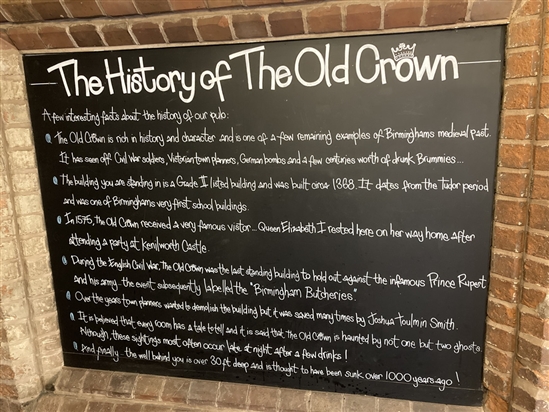 The History of The Old Crown
A few interesting facts about the history of our pub:
The Old Crown is rich in history and character and is one of a few remaining examples of Birminghams medieval past.
It has seen off Civil War soldiers, Victorian town planners, German bombs and a few centuries worth of drunk Brummies...
The building you are standing in is a Grade II listed building and was built circa 1368. It dates from the Tudor period
and was one of Birminghams very first school buildings.
In 1575, The Old Crown received a very famous visitor... Queen Elizabeth I rested here on her way home after
attending a party at Kenilworth Castle.
During the English Civil War, The Old Crown was the last standing building to hold out against the infamous Prince Rupert
and his army - the event subsequently labelled the "Birmingham Butcheries"
Over the years town planners wanted to demolish the building but it was saved many times by Joshua Toulmin Smith.
It is believed that every room has a tale to tell and it is said that The Old Crown is haunted by not one but two ghosts.
Although, these sightings most often occur late at night after a few drinks!
And finally - the well behind you is over 30ft deep and is thought to have been sunk over 1000 years ago!